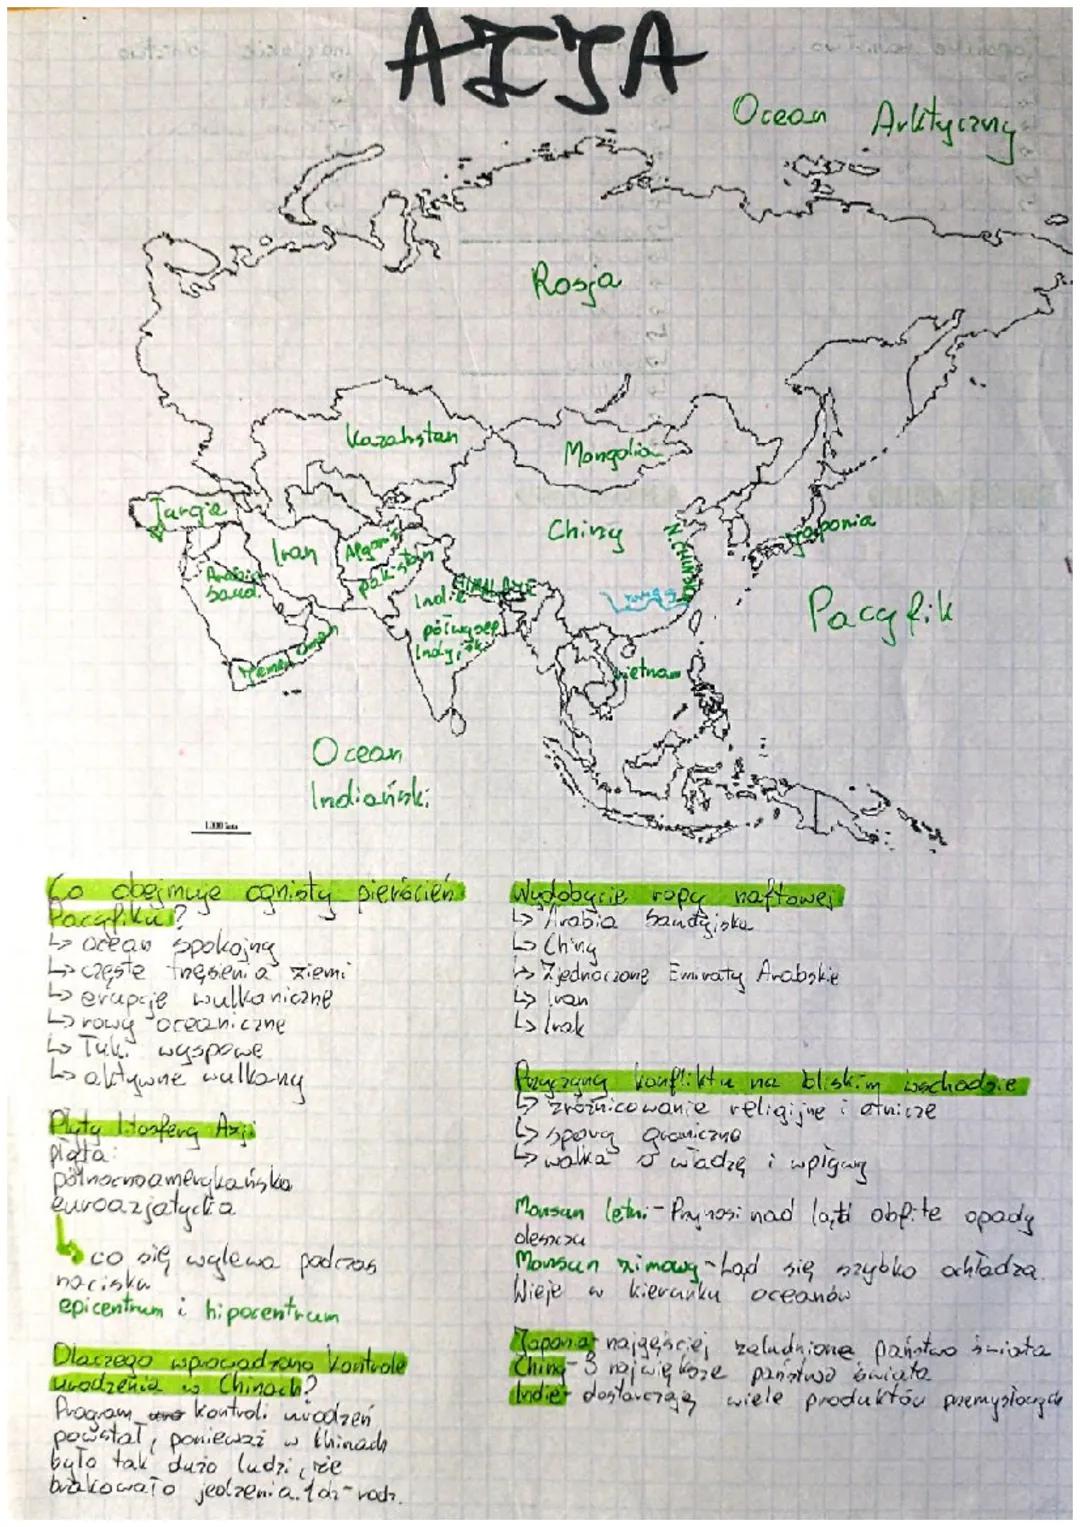 AZJA
Ocean Arktyczny
Rosja
Kazahstan
Mongolia
Turcja
Iran
Afgan
Chiny
N. CHIŃSKA
Japonia
Arabia
Saud.
pakistan
Indie
HIMALAJE
półwysep
Indyjsk
Pacyfik
Jemen Oman
Wietnam
Ocean
Indiański
1000 km
Co obejmuje ognisty pierścień
Pacyfiku?
↳ ocean spokojny
↳ częste trzęsienia ziemi
↳ erupcje wulkaniczne
↳ rowy oceaniczne
↳ Łuki wyspowe
↳ aktywne wulkany
Płyty litosfery Azji
płyta:
północnoamerykańska
euroazjatycka
↳ co się wylewa podczas
nacisku
epicentrum i hipocentrum
Dlaczego wprowadzono kontrole
urodzenia w Chinach?
Program kontroli urodzeń
powstał, ponieważ w Chinach
było tak dużo ludzi, że
brakowało jedzenia. 1dz-rodz.
Wydobycie ropy naftowej
↳ Arabia Saudyjska
↳ Chiny
↳ Zjednoczone Emiraty Arabskie
↳ Iran
↳ Irak
Przyczyny konfliktu na bliskim wschodzie
↳ zróżnicowanie religijne i etnicze
↳ spory graniczne
↳ walka o władzę i wpływy
Monsun letni - Przynosi nad ląd obfite opady
deszczu
Monsun zimowy - Ląd się szybko ochładza.
Wieje w kierunku oceanów
Japonia - najgęściej zaludnione państwo świata
Chiny - 3 największe państwo świata
Indie - dostarczają wiele produktów przemysłowych